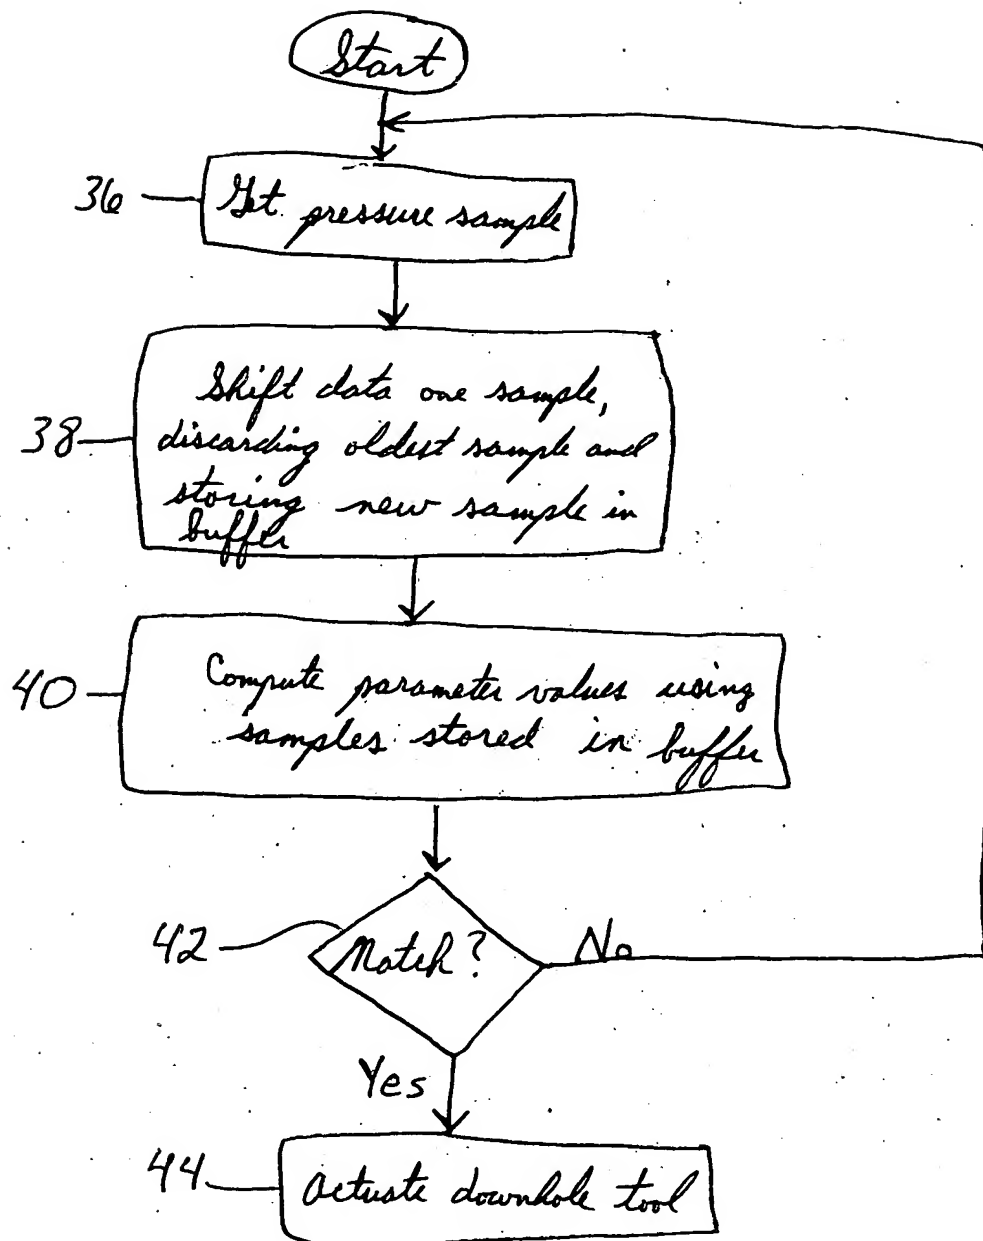 Start
36
Get pressure sample
38
Shift data one sample,
discarding oldest sample and
storing new sample in
buffer
40
Compute parameter values using
samples stored in buffer
42
Match?
No
Yes
44
Actuate downhole tool